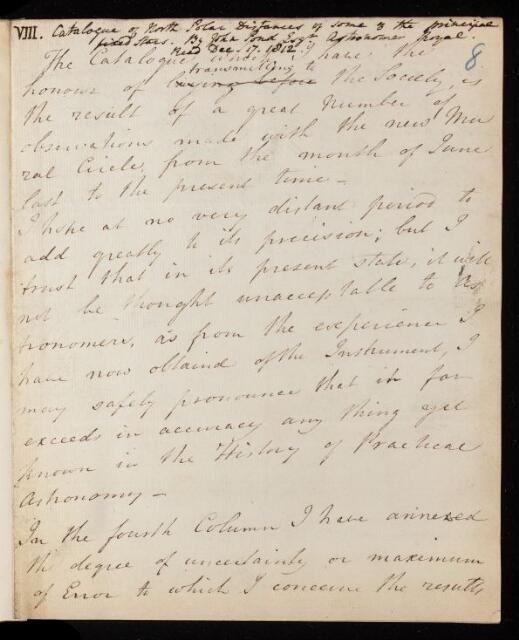 VIII. Catalogue of North Polar Distances of some of the principal
fixed Stars. By John Pond Esqr. Astronomer Royal.
Read Dec. 17. 1812.
8
The Catalogue, which I have the
transmitting to
honour of laying before the Society, is
the result of a great number of
observations made with the new Mu
ral Circle, from the month of June
last to the present time —
I hope at no very distant period to
add greatly to its precision; but I
trust that in its present state, it will
not be thought unacceptable to As
tronomers, as from the experience I
have now obtaind of the Instrument, I
may safely pronounce that it far
exceeds in accuracy any thing yet
known in the History of Practical
Astronomy —
In the fourth Column I have annexed
the degree of uncertainty or maximum
of Error to which I conceive the results